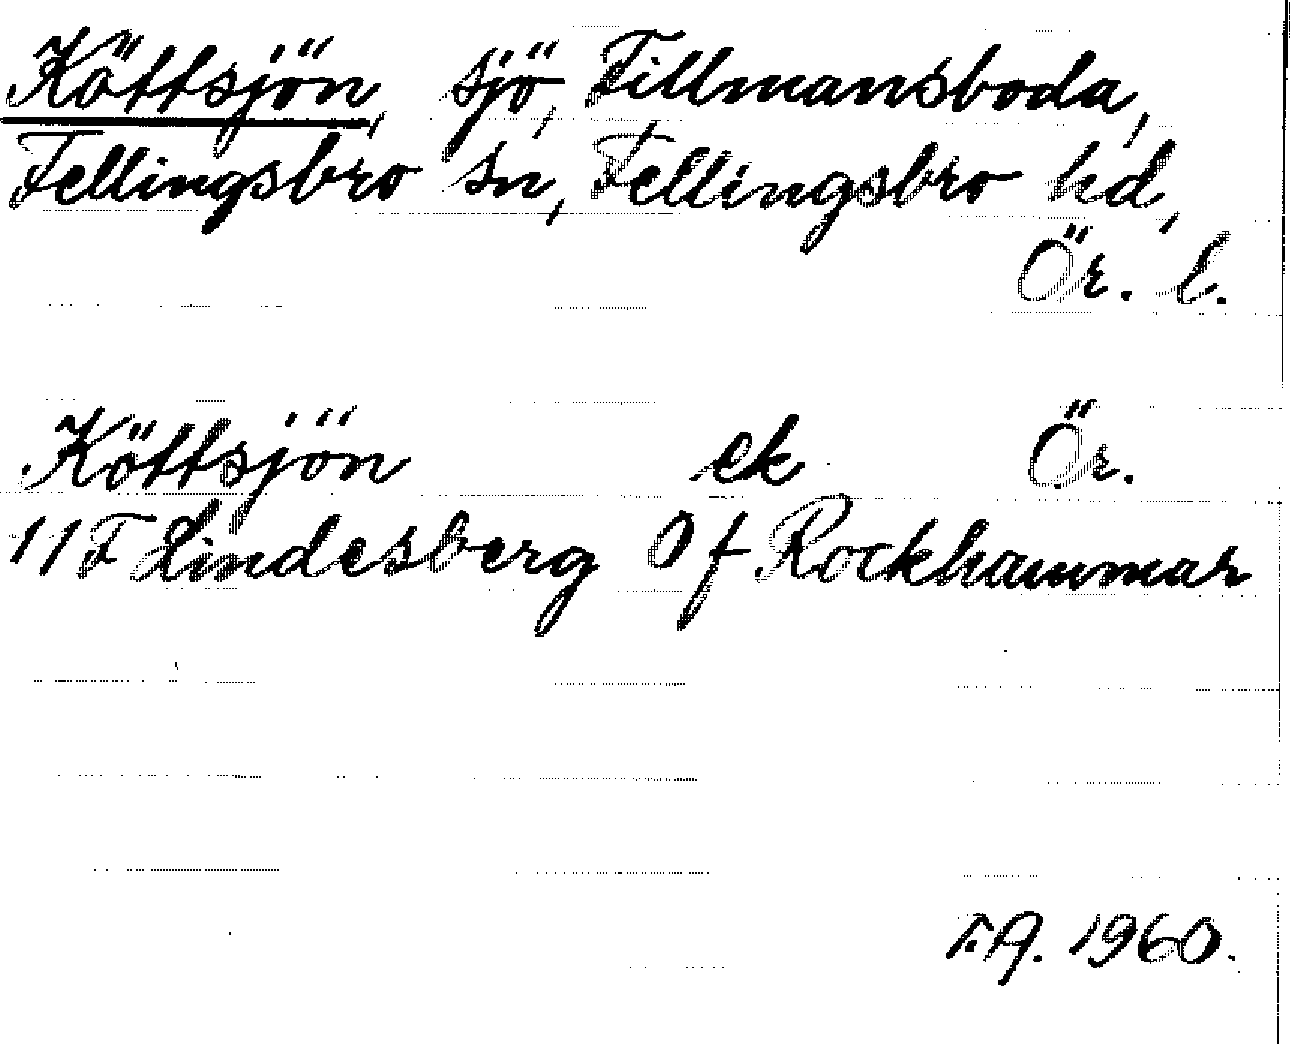 Köttsjön, sjö, Fillmansboda,
Fellingsbro sn, Fellingsbro hd,
Ör. l.
Köttsjön ek Ör.
11F Lindesberg 0f Rockhammar
F.A. 1960.